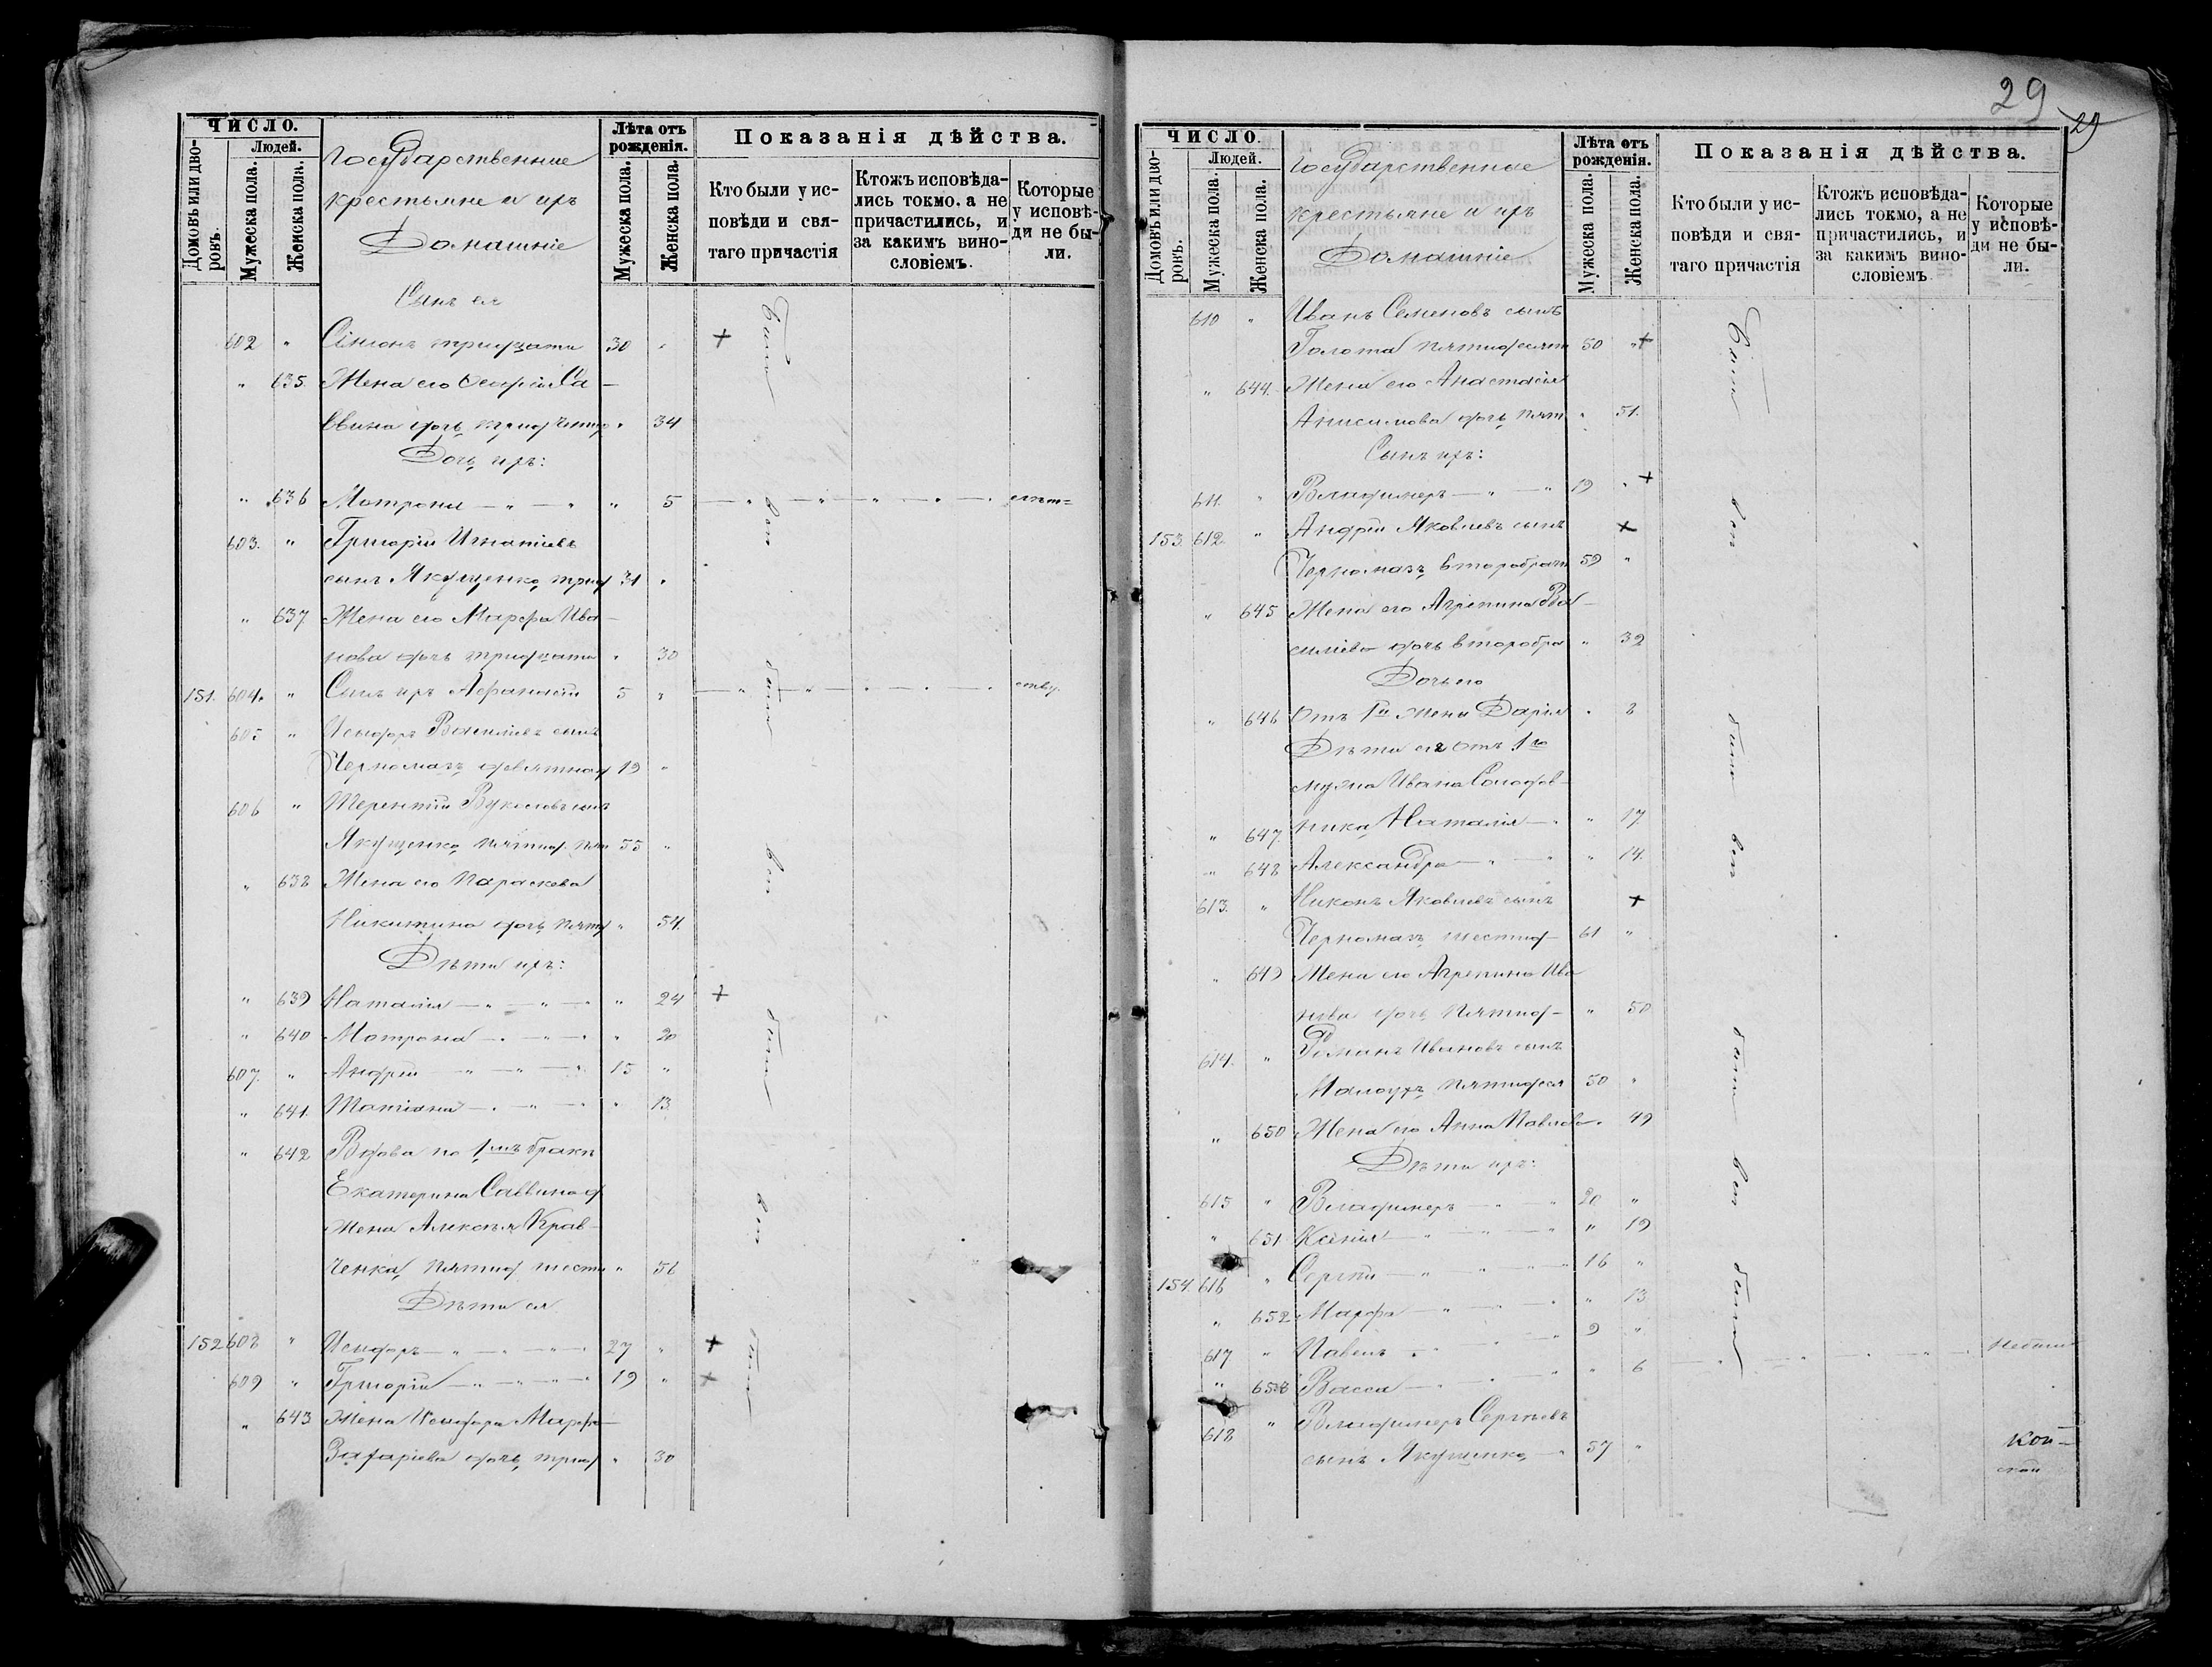 29
29
ЧИСЛО.
Домовъ или дворовъ.
Людей.
Мужеска пола.
Женска пола.
Государственные
крестьяне и ихъ
Домашніе
Лѣта отъ рожденія.
Мужеска пола.
Женска пола.
Показанія дѣйства.
Кто были у исповѣди и святаго причастія
Ктожъ исповѣдались токмо, а не причастились, и за какимъ винословіемъ.
Которые у исповѣди не были.
Сынъ ея
602 " Сімонъ тридцати 30 "
" 635. Жена его Са-
ввина дочь 34
Дочь ихъ:
" 636 Мотрона " " 5
603. " Григорій Игнатіевъ
сынъ Якущенко, трид 31 "
" 637 Жена его Марфа Ива-
нова дочь тридцати " 30
151. 604. " Сынъ ихъ Афанасій 5 "
605 " Исидоръ Василіевъ сынъ
Черномазъ девятнад 19 "
606 " Терентій Вуколовъ сынъ
Якущенко, пятид. пят 55 "
" 638 Жена его Параскева
Никитина дочь, пятд " 54.
Дѣти ихъ:
" 639 Наталія " 24
" 640 Мотрона " 20
607. " Андрей 15 "
" 641. Татіана " 13
" 642 Вдова по 1мъ бракѣ
Екатерина Саввина д
жена Алексѣя Крав-
ченка, пятид шести " 56
Дѣти ея
152 608 " Исидоръ 27 "
609 " Григорій 19 "
" 643 Жена Исидора Марфа
Захаріева дочь, трид " 30
Были вси были вси были вси были
ЧИСЛО.
Домовъ или дворовъ.
Людей.
Мужеска пола.
Женска пола.
Государственные
крестьяне и ихъ
Домашніе
Лѣта отъ рожденія.
Мужеска пола.
Женска пола.
Показанія дѣйства.
Кто были у исповѣди и святаго причастія
Ктожъ исповѣдались токмо, а не причастились, и за какимъ винословіемъ
Которые у исповѣди не были.
610 " Иванъ Семеновъ сынъ
Голота пятидесят 50 "
" 644. Жена его Анастасія
Анисимова дочь, пят " 51.
Сынъ ихъ:
611. " Владимеръ 19 "
153. 612. " Андрей Яковлевъ сынъ
Черномазъ, второбрач 59 "
" 645 Жена его Агрепина Ва-
силіева дочь второбра " 39
Дочь его
" 646 Отъ 1й жены Дарія " 8
Дѣти ея отъ 1го
мужа Ивана Солодов-
" 647. ника, Наталія " 17
" 648 Александра " 14.
613. " Никонъ Яковлевъ сынъ
Черномазъ, шестид- 61 "
" 649 Жена его Агрепина Ива
нова дочь, пятид- " 50
614. " Романъ Ивановъ сынъ
пятидеся 50 "
" 650 Жена его Анна Павлова " 49
Дѣти ихъ:
615 " Владимеръ 20 "
" 651 Ксенія " 19
154. 616 " Сергѣй 16 "
" 652 Марфа " 13
617 " Павелъ 9 "
" 653 Васса " 6
618 " Владимеръ Сергѣевъ
сынъ Якущенко, 57 "
Были вси были вси были вси были